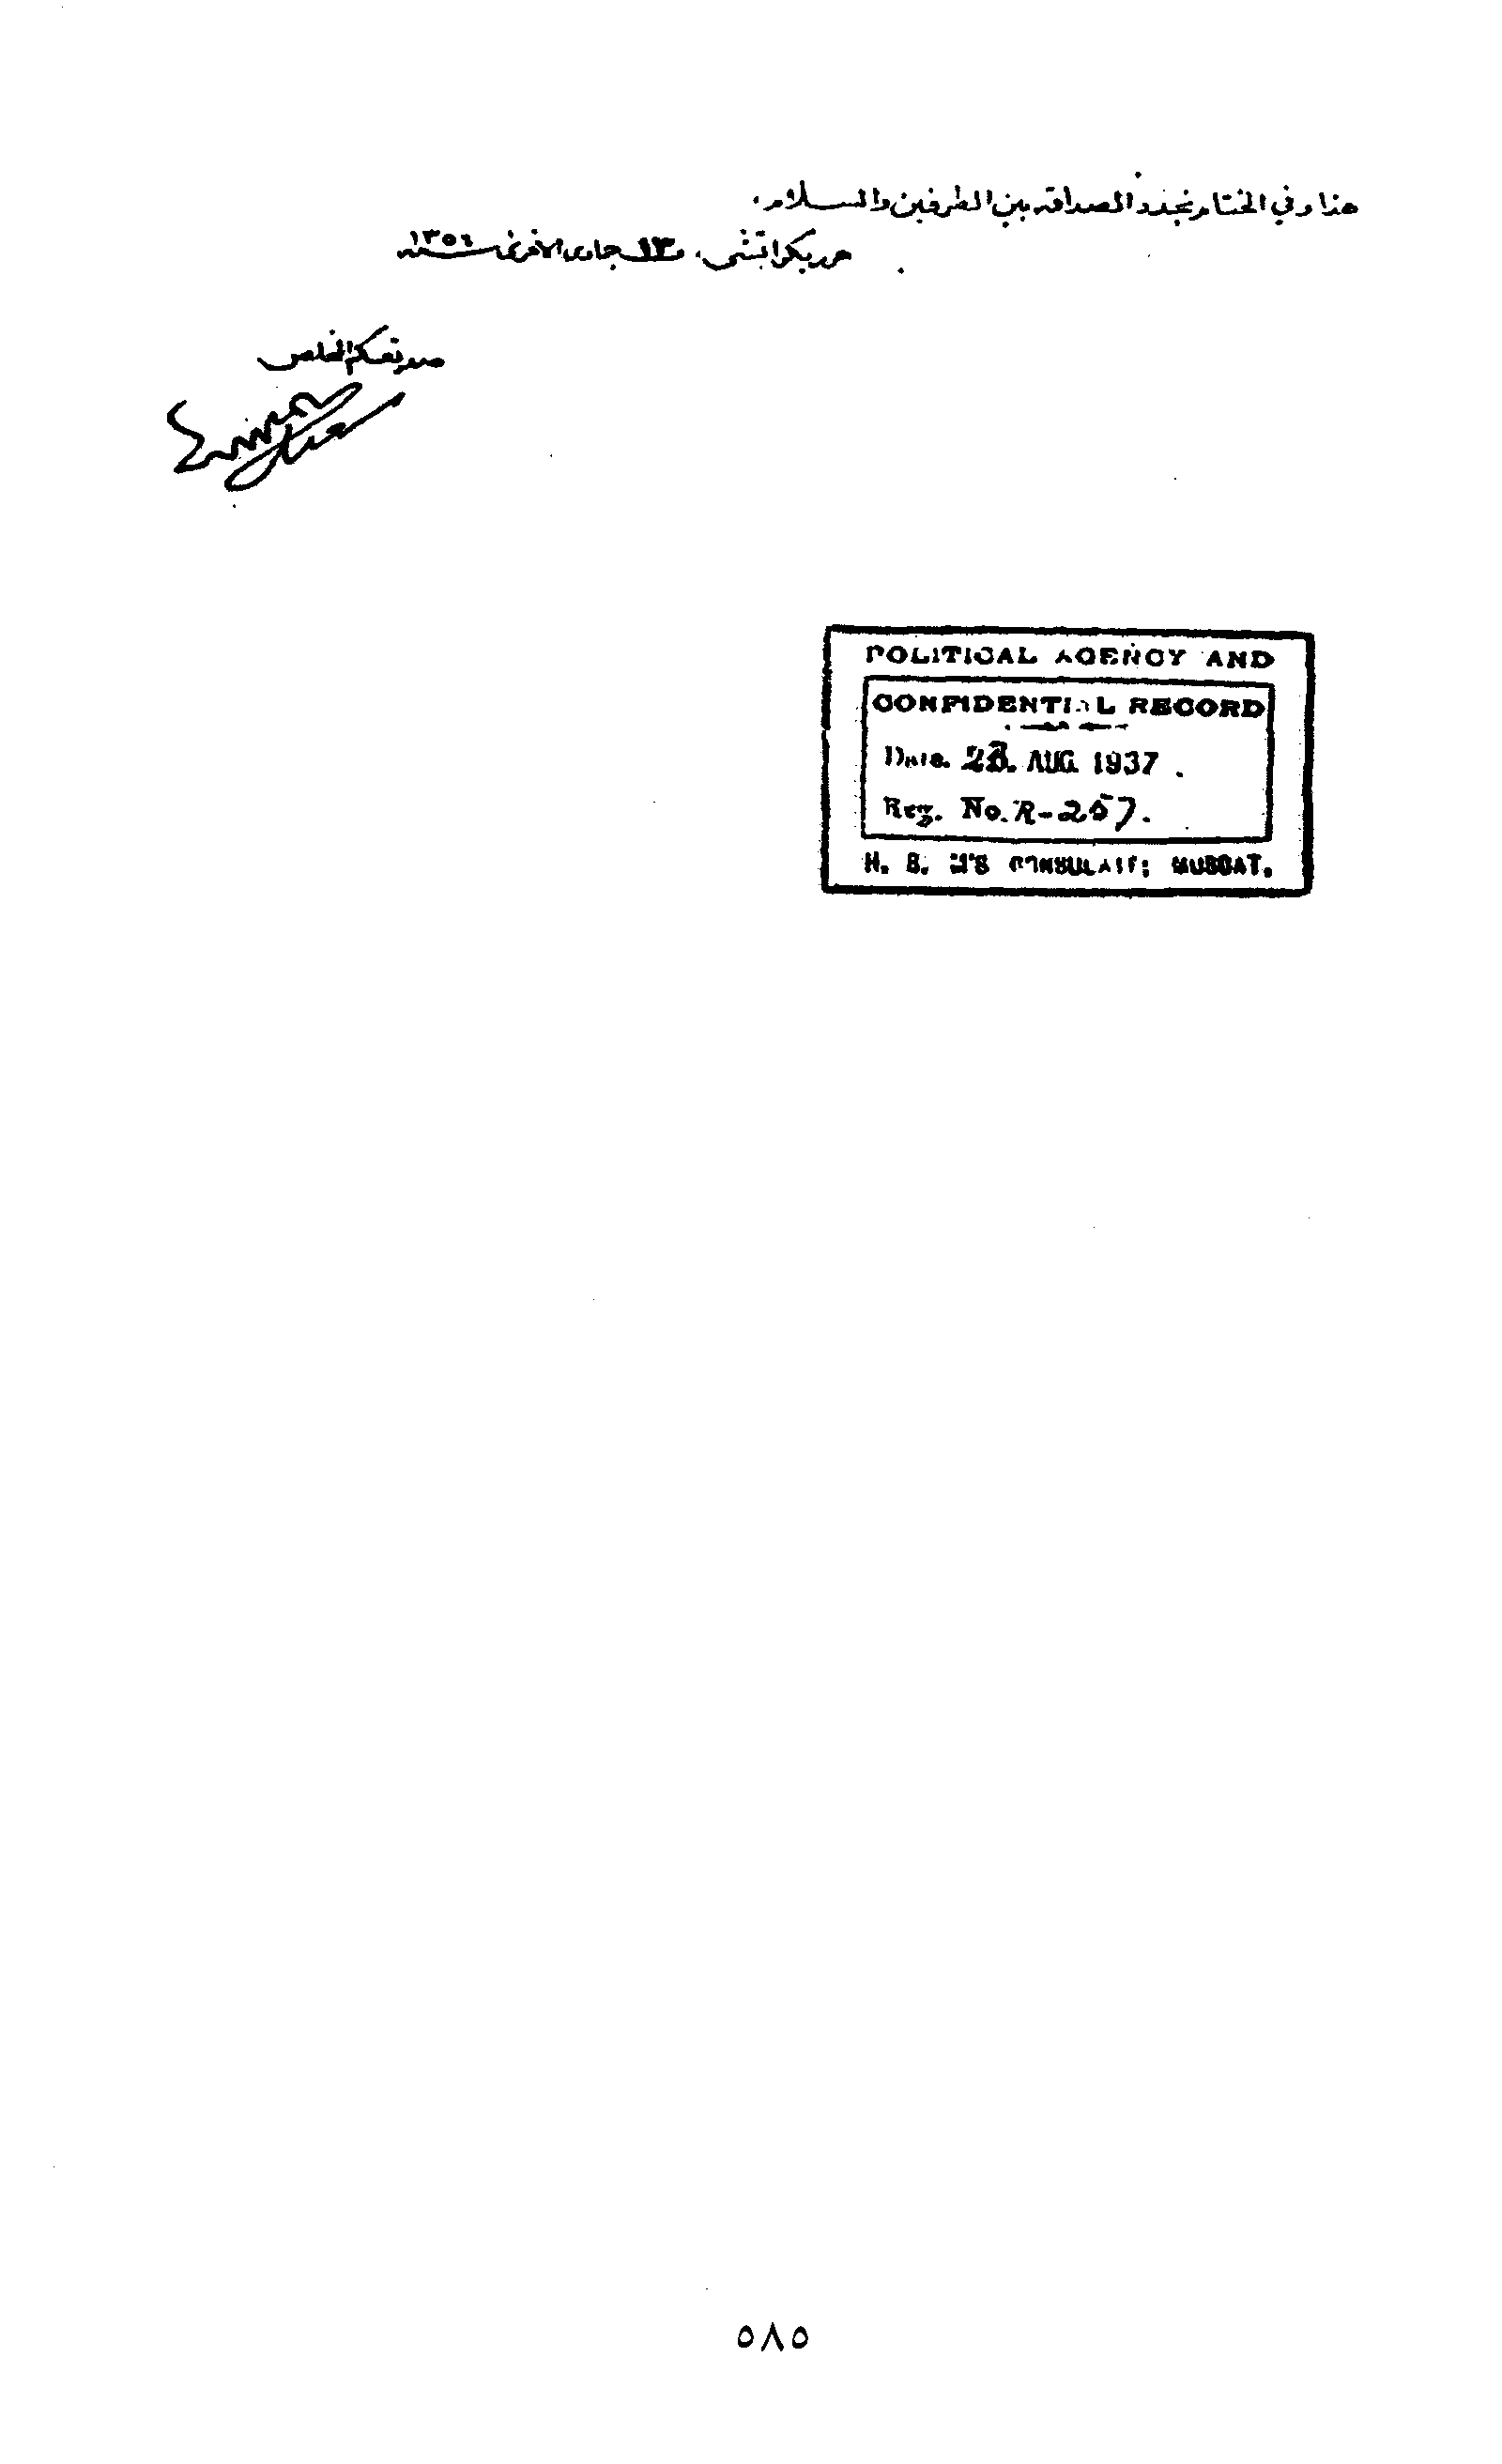 هذا وفي الختام نجدد الصداقه بين الطرفين والسلام.
حرر بكراتشي، في ١٣ جمادى الاخرى سنة ١٣٥٦
صديقكم المخلص
POLITICAL AGENCY AND
CONFIDENTIAL RECORD
Date. 23. AUG. 1937.
Reg. No. R-257.
H. B. M'S CONSULATE; MUSCAT.
٥٨٥